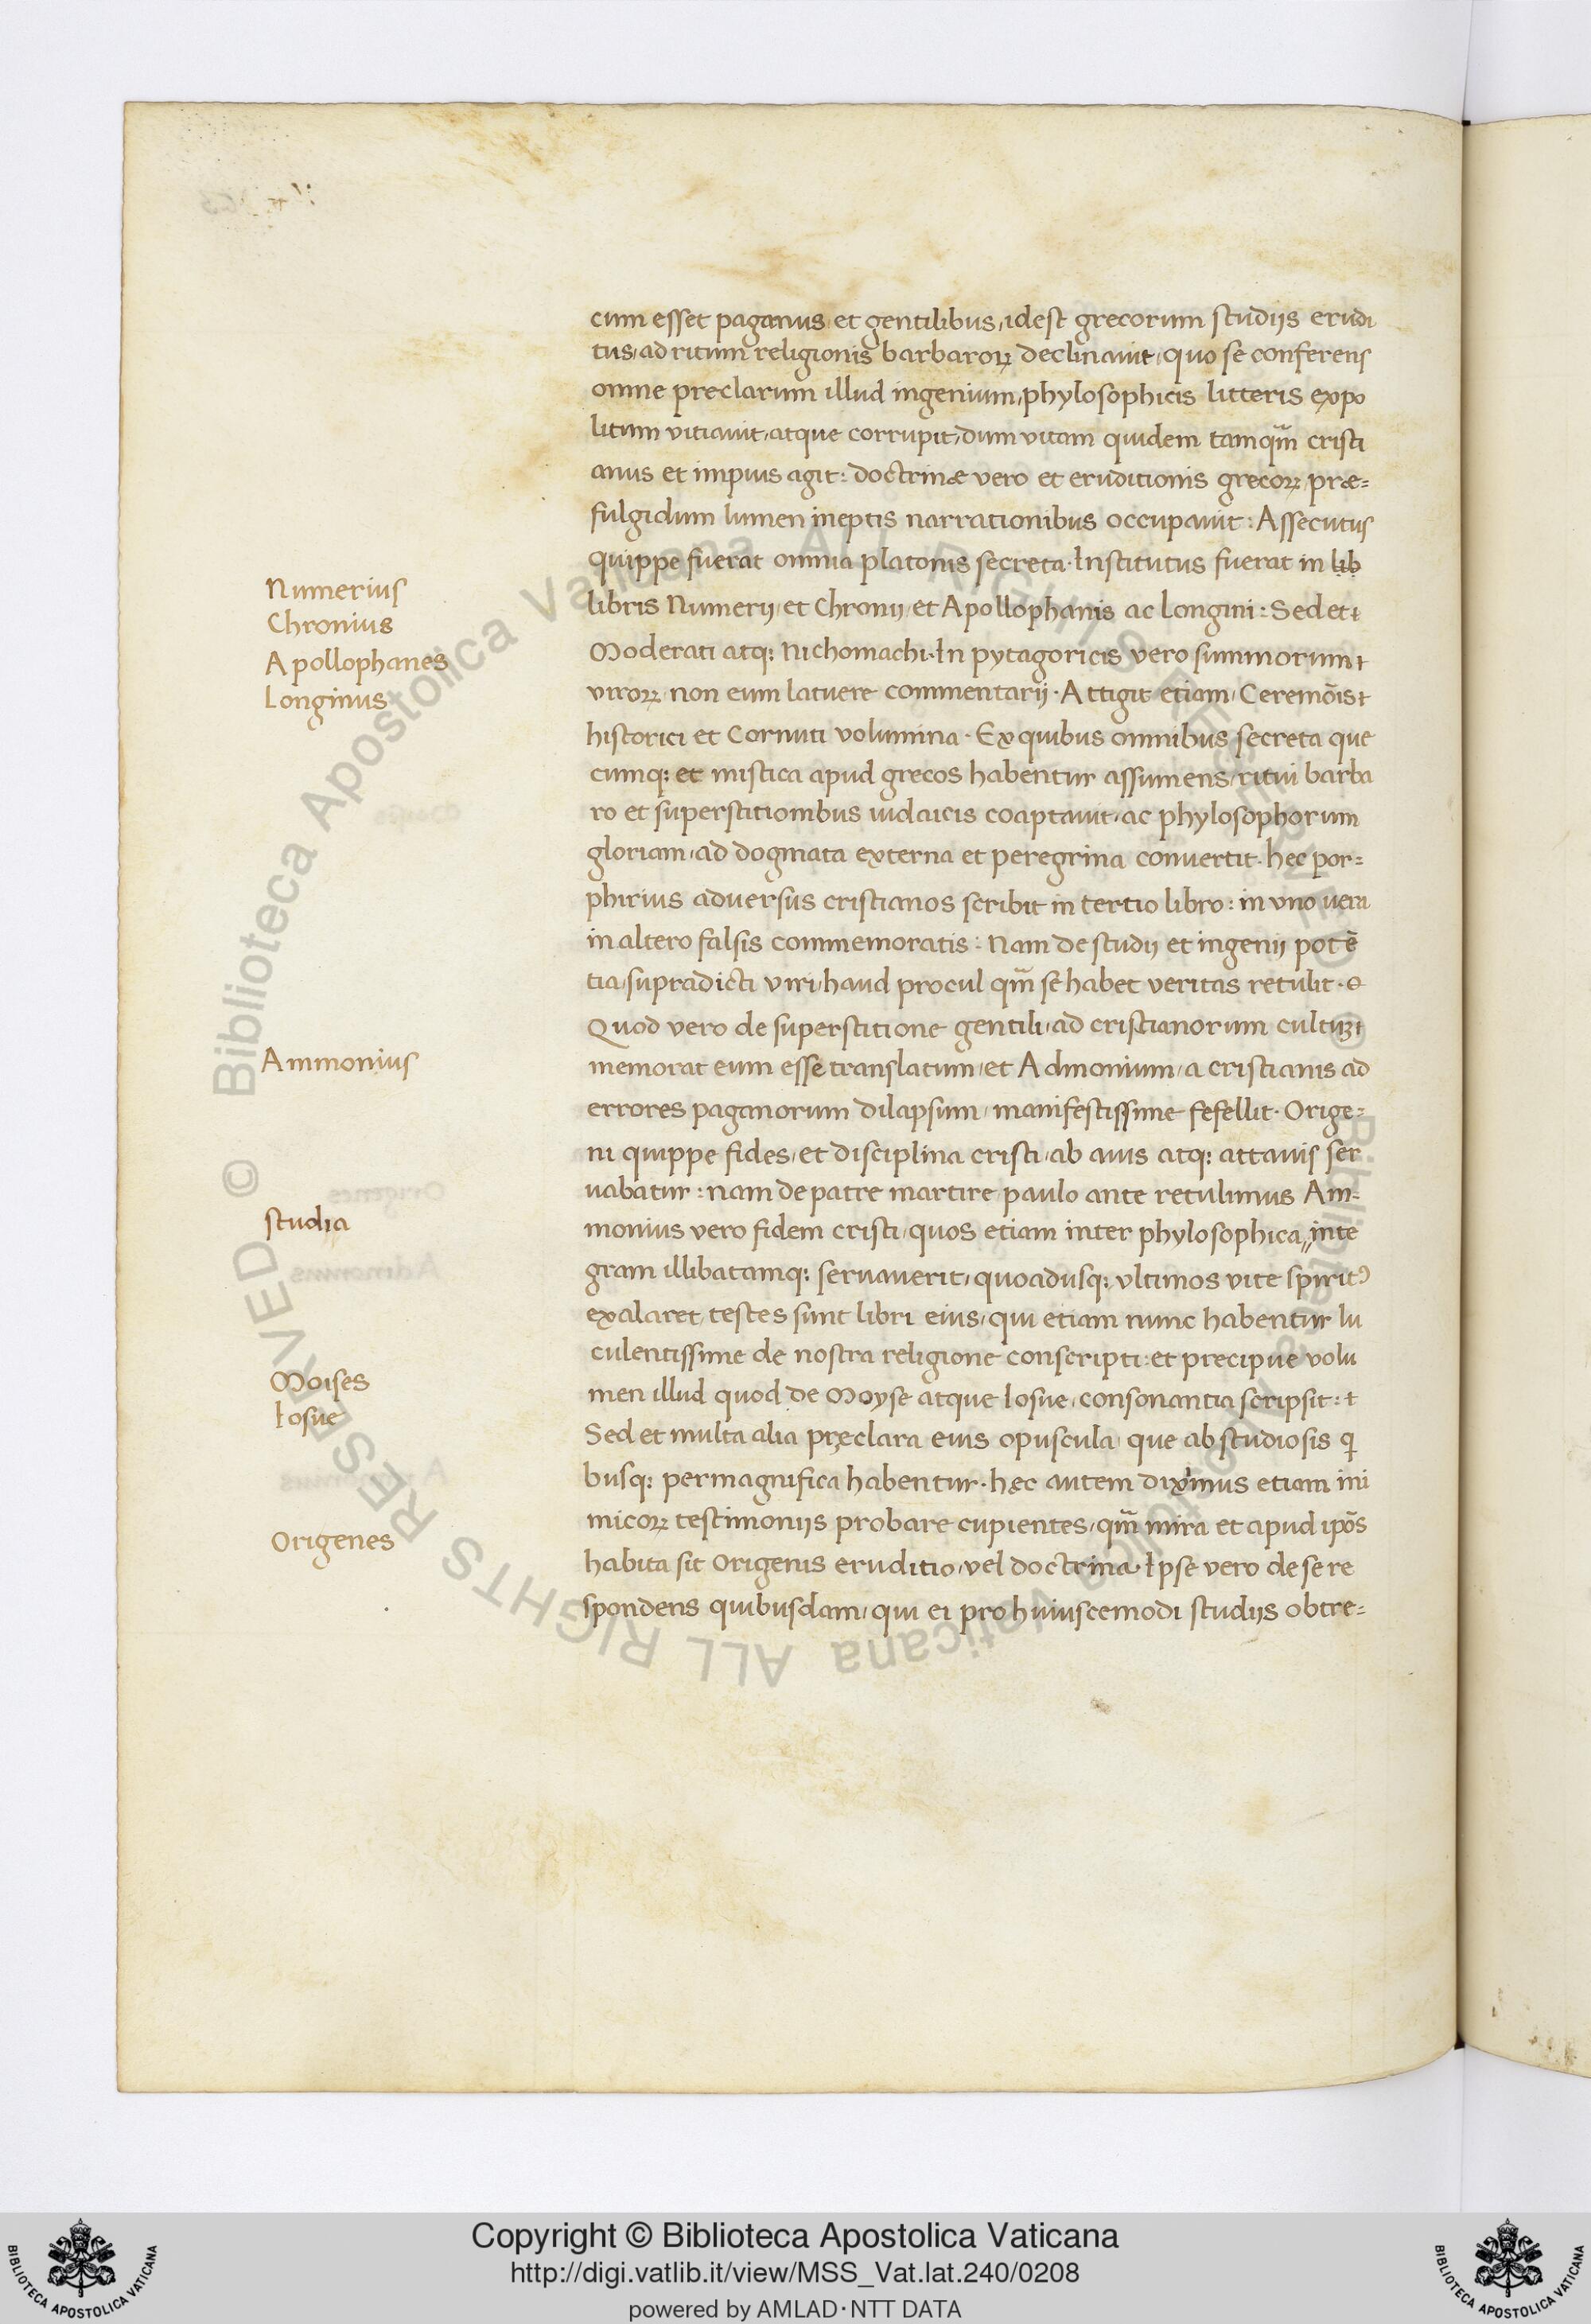 cum esset paganus et gentilibus, idest grecorum studijs erudi
tus, ad ritum religionis barbaroꝝ declinauit, quo se conferens
omne preclarum illud ingenium, phylosophicis litteris expo
litum vitiauit, atque corrupit, dum vitam quidem tamqm̄ cristi
anus et impius agit: doctrinæ vero et eruditionis grecoꝝ præ=
fulgidum lumen ineptis narrationibus occupauit: Assecutus
quippe fuerat omnia platonis secreta. Institutus fuerat in lib
libris Numerij, et Chronij, et Apollophanis ac Longini: Sed et
Moderati atq: Nichomachi. In pytagoricis vero summorum
viroꝝ non eum latuere commentarij. Attigit etiam, Ceremōis
historici et Cornuti volumina. Ex quibus omnibus secreta que
cumq: et mistica apud grecos habentur assumens, ritui barba
ro et superstitionibus iudaicis coaptauit, ac phylosophorum
gloriam, ad dogmata externa et peregrina conuertit. hec por=
phirius adversus cristianos scribit in tertio libro: in uno vera
in altero falsis commemoratis: Nam de studij et ingenij potē
tia, supradicti viri, haud procul qm̄ se habet veritas retulit.
Quod vero de superstitione gentili, ad cristianorum cultuꝫ
memorat eum esse translatum, et Admonium, a cristianis ad
errores paganorum dilapsum, manifestissime fefellit. Orige=
ni quippe fides, et disciplina cristi, ab auis atq: attauis ser
uabatur: nam de patre martire paulo ante retulimus Am=
monius vero fidem cristi, quos etiam inter phylosophica,, inte
gram illibatamq: seruauerit, quoadusq: vltimos vite spiritꝰ
exalaret, testes sunt libri eius, qui etiam nunc habentur lu
culentissime de nostra religione conscripti: et precipue volu
men illud quod de Moyse atque Iosue, consonantia scripsit:
Sed et multa alia pręclara eius opuscula, que ab studiosis q
busq: permagnifica habentur. hęc autem diximus etiam ini
micoꝝ testimonijs probare cupientes, qm̄ mira et apud ipōs
habita sit Origenis eruditio, vel doctrina. Ipse vero de se re
spondens quibusdam, qui ei pro huiuscemodi studijs obtre=
Numerius
Chronius
Apollophanes
Longinus
Ammonius
studia
Moises
Iosue
Origenes
© Biblioteca Apostolica Vaticana ALL RIGHTS RESERVED © Biblioteca Apostolica Vaticana ALL RIGHTS RESERVED
Copyright © Biblioteca Apostolica Vaticana
http://digi.vatlib.it/view/MSS_Vat.lat.240/0208
powered by AMLAD·NTT DATA
BIBLIOTECA APOSTOLICA VATICANA
BIBLIOTECA APOSTOLICA VATICANA